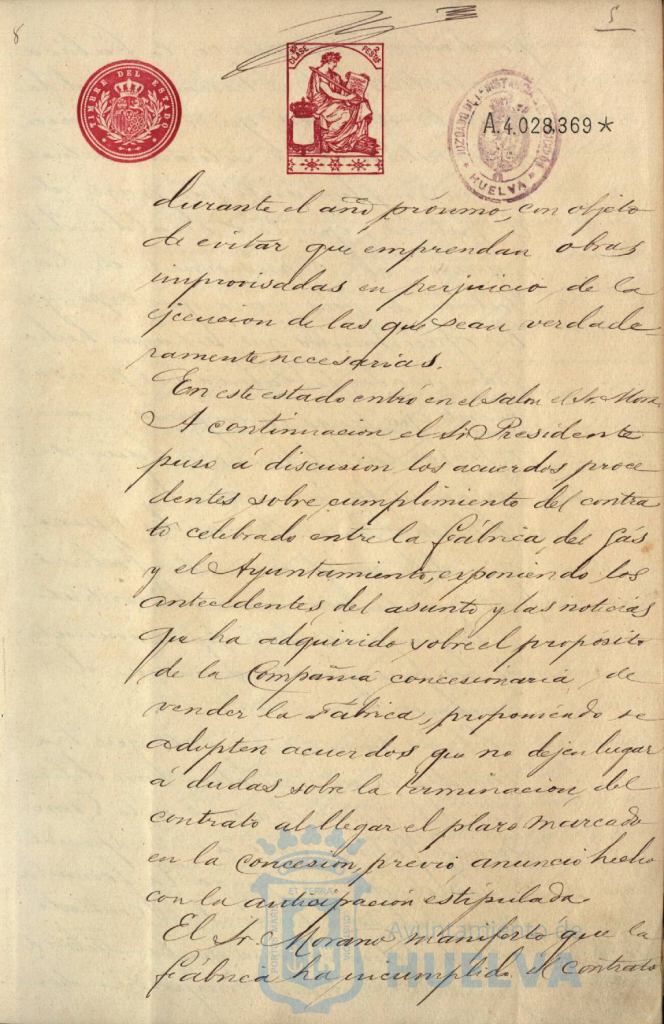 8
5
TIMBRE DEL ESTADO
CLASE
PESTAS
A.4.028,369*
JUZGADO DE 1ª INSTANCIA
HUELVA
durante el año próximo, con objeto
de evitar que emprendan obras
improvisadas en perjuicio de la
ejecucion de las que sean verdade-
ramente necesarias.
En este estado entró en el salon el Sr. Mora
A continuacion el Sr. Presidente
puso á discusion los acuerdos proce
dentes sobre cumplimiento del contra
to celebrado entre la fábrica del Gás
y el Ayuntamiento, exponiendo los
antecedentes del asunto y las noticias
que ha adquirido sobre el proposito
de la Compañia concesionaria de
vender la Fábrica, proponiendo se
adopten acuerdos que no dejen lugar
á dudas sobre la terminacion del
contrato al llegar el plazo marcado
en la concesion, previo anuncio hecho
con la anticipación estipulada.
El Sr. Morano manifestó que la
fábrica ha incumplido el contrato
PORTUS MARIS
ET TERRAE
CUSTODIA
Ayuntamiento de
HUELVA